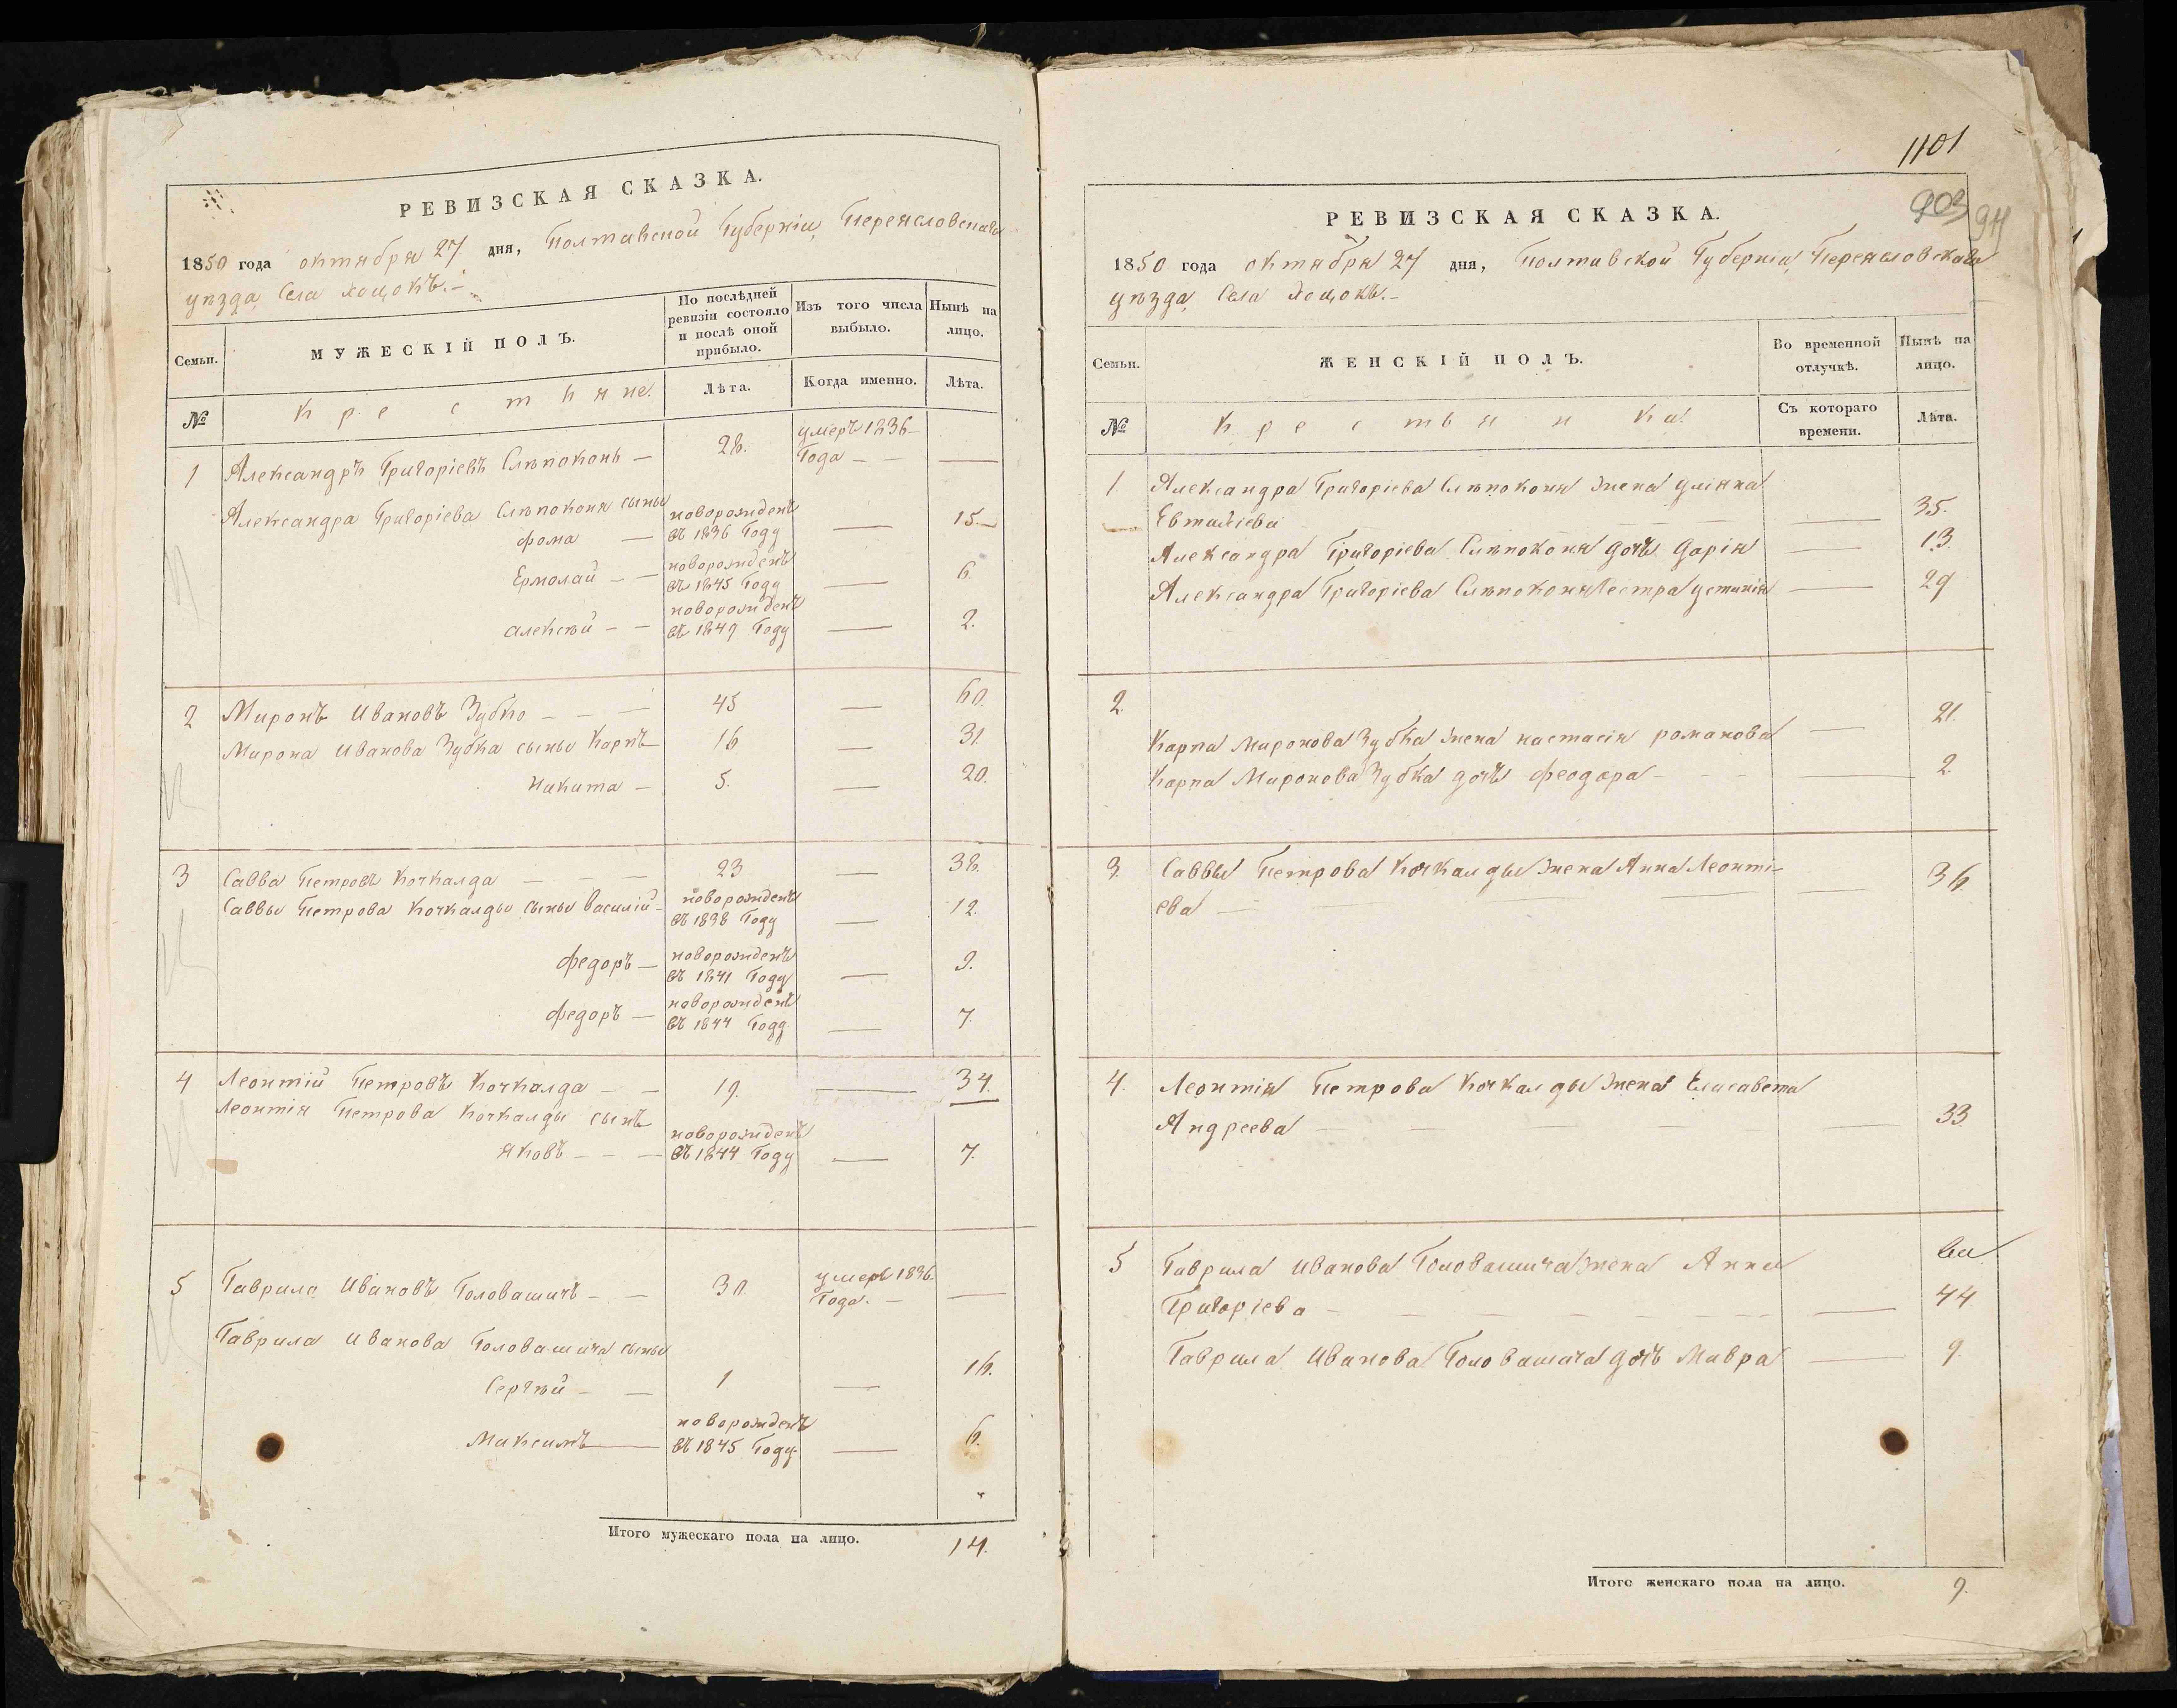 РЕВИЗСКАЯ СКАЗКА.
1850 года октября 27 дня, Полтавской Губерніи, Переясловскаго
уѣзда, Села Хоцокъ.-
Семьи.
МУЖЕСКІЙ ПОЛЪ.
По послѣдней ревизіи состояло и послѣ оной прибыло.
Изъ того числа выбыло.
Нынѣ на лицо.
№
Крестьяне.
Лѣта.
Когда именно.
Лѣта.
1 Александръ Григоріевъ Слѣпоконь — 28. умеръ 1836 Года — —
Александра Григоріева Слѣпоконя сыны
фома — новорожденъ въ 1836 Году — 15
Ермолай — — новорожденъ въ 1845 Году — 6.
алексѣй — — новорожденъ въ 1849 Году — 2.
2 Миронъ Ивановъ Зубко — — — 45 — 60.
Мирона Иванова Зубка сыны Карпъ 16 — 31.
Никита — 5. — 20.
3 Савва Петровъ Кочкалда — — — 23 — 38.
Саввы Петрова Кочкалды сыны василій — новорожденъ въ 1838 Году — 12.
федоръ — новорожденъ въ 1841 Году — 9.
федоръ — новорожденъ въ 1844 Году — 7.
4 Леонтій Петровъ Кочкалда — — 19. — 34.
Леонтія Петрова Кочкалды сынъ
яковъ — — — новорожденъ въ 1844 Году — 7.
5 Гаврило Ивановъ Головашичъ — — 30. умеръ 1836. Года. — —
Гаврила Иванова Головашича сыны
Сергѣй — — 1 — 16.
Максимъ — новорожденъ въ 1845 Году. — 6.
Итого мужескаго пола на лицо. 14.
1101
903
94
РЕВИЗСКАЯ СКАЗКА.
1850 года октября 27 дня, Полтавской Губерніи, Переясловскаго
уѣзда, Села Хоцокъ.-
Семьи.
ЖЕНСКІЙ ПОЛЪ.
Во временной отлучкѣ.
Нынѣ на лицо.
№
Крестьянки
Съ котораго времени.
Лѣта.
1 Александра Григоріева Слѣпоконя жена уліяна
Евтихіева — — 35.
Александра Григоріева Слѣпоконя дочь дарія — 13.
Александра Григоріева Слѣпоконя Сестра устинія — 29
2.
Карпа Миронова Зубка жена настасія романова — 21.
Карпа Миронова Зубка дочь феодора — — — 2.
3. Саввы Петрова Кочкалды жена Анна Леонті-
ева — — — — 36.
4. Леонтія Петрова Кочкалды жена Елисавета
Андреева — — — — 33.
5 Гаврила Иванова Головашича жена Анна
Григоріева — — — — 44
Гаврила Иванова Головашича дочь Мавра — 9.
Итого женскаго пола на лицо. 9.